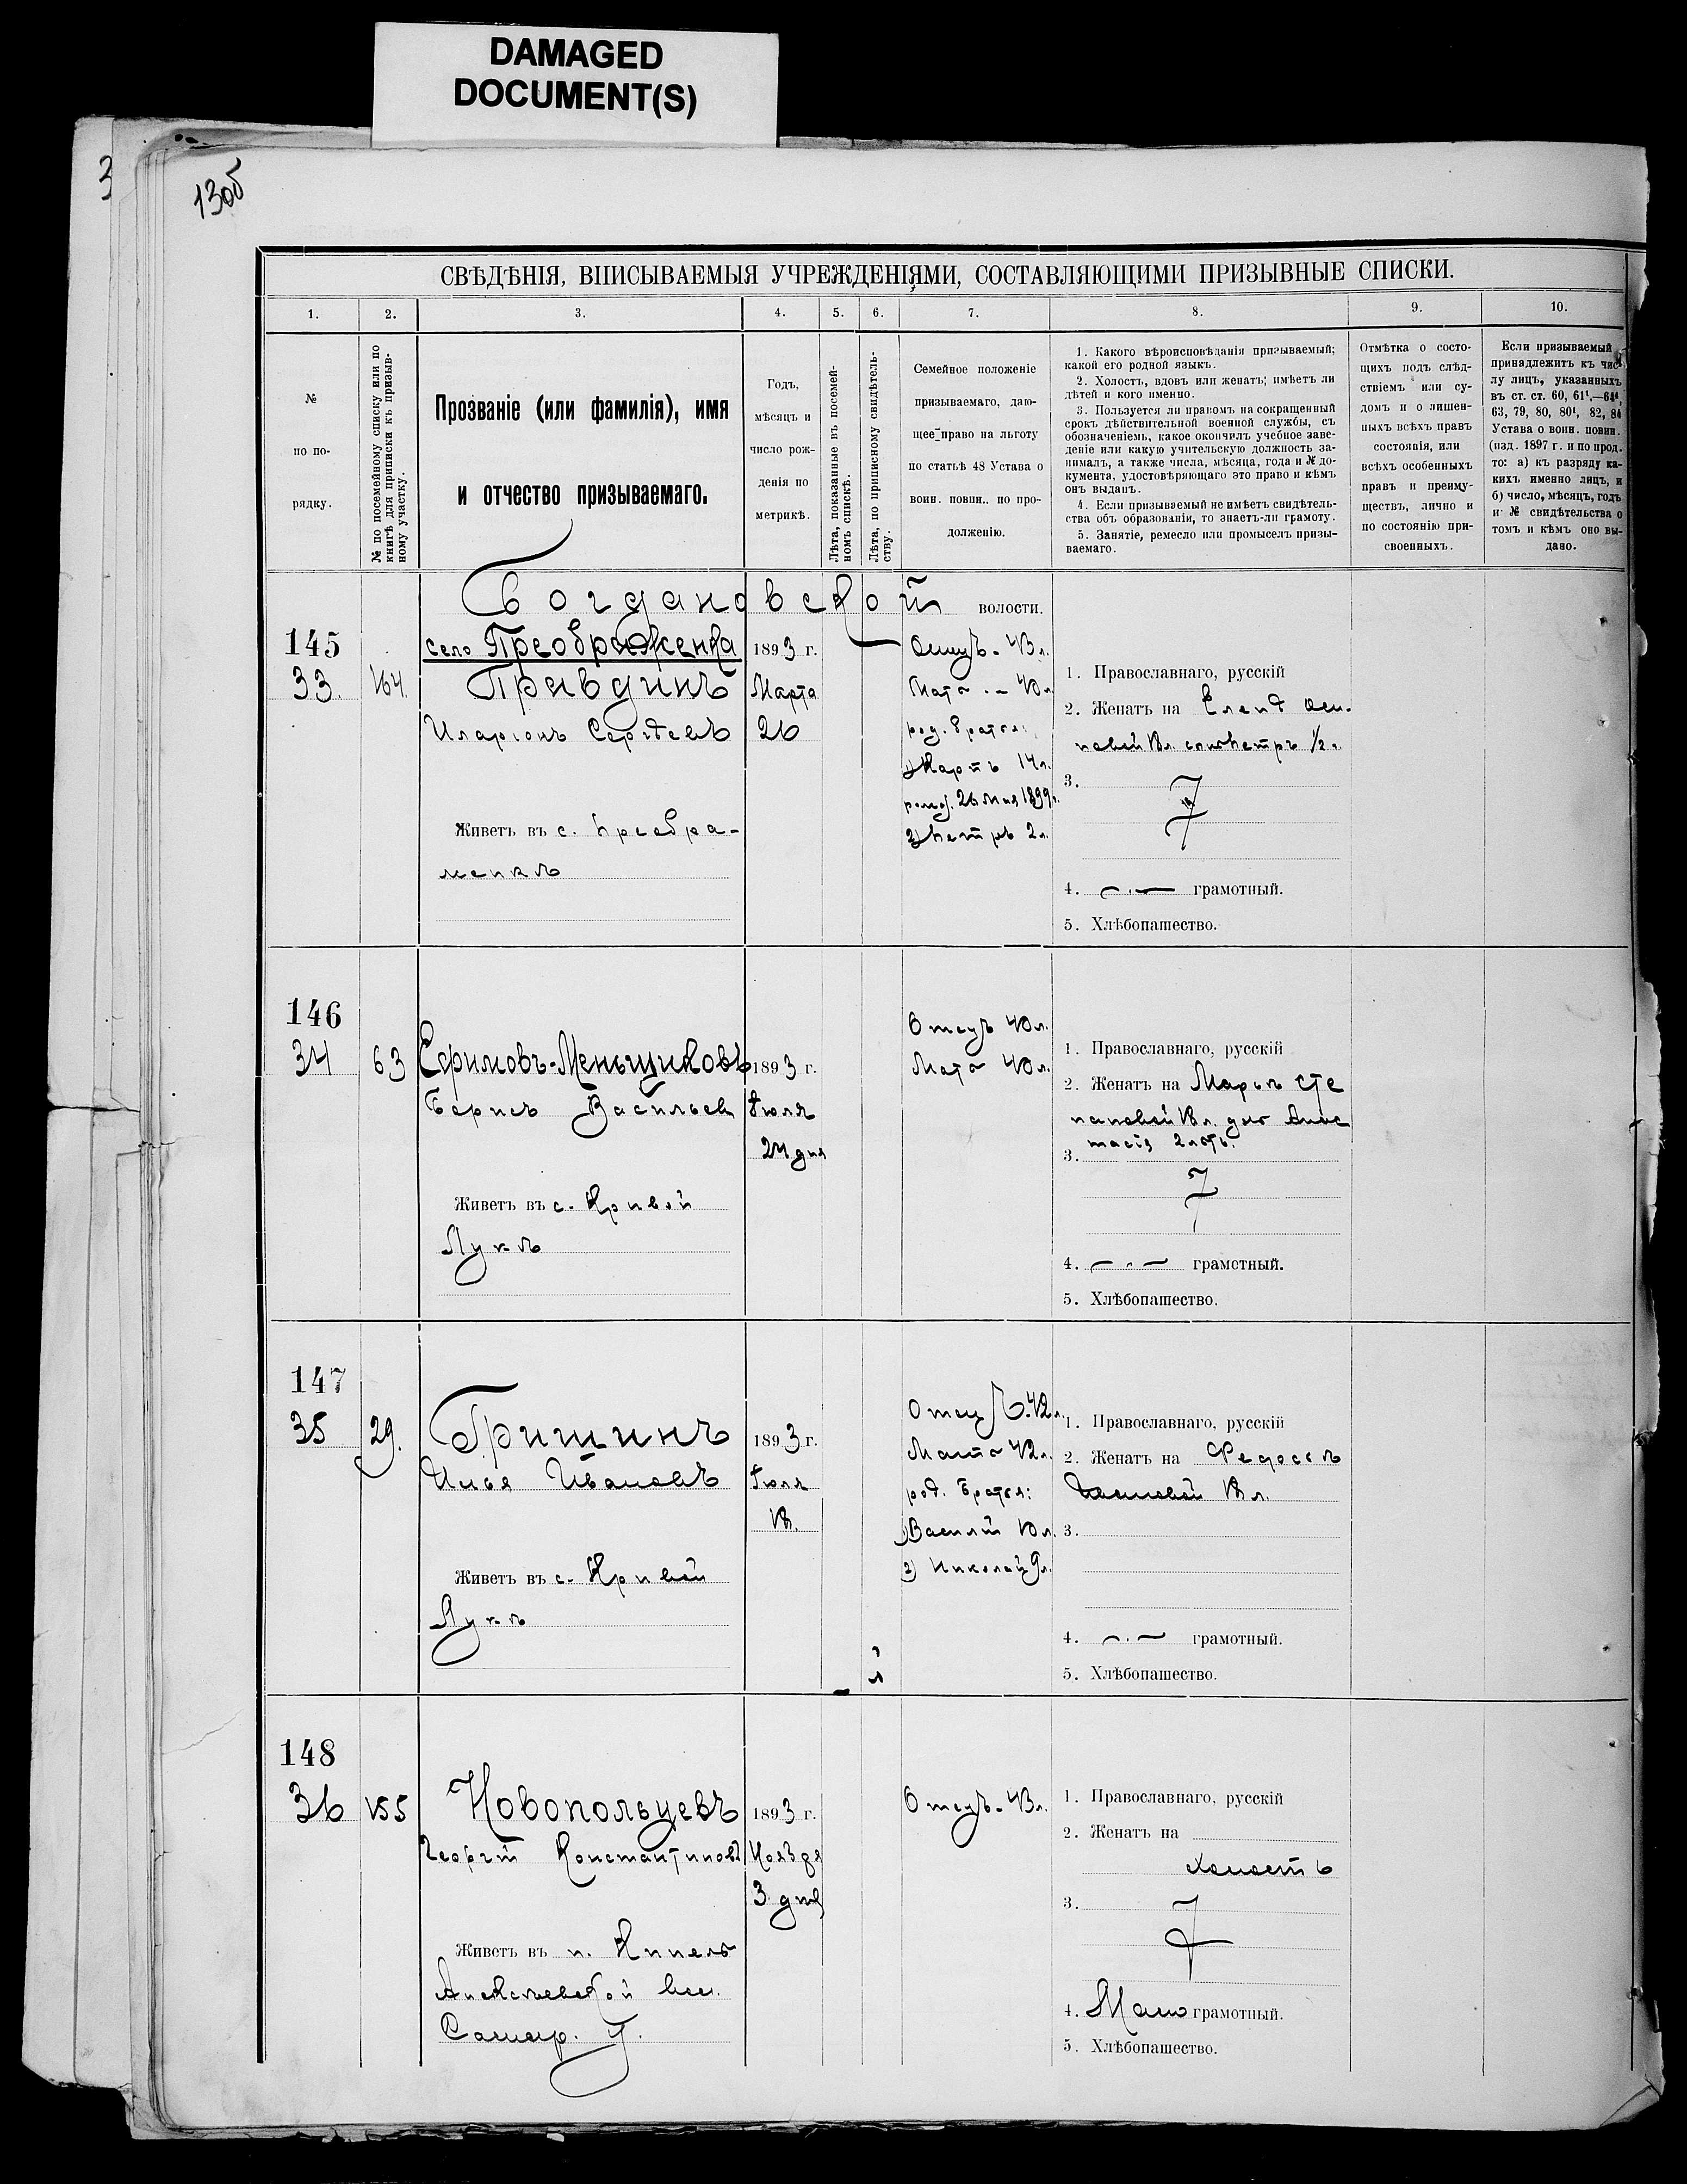 DAMAGED
DOCUMENT(S)
13об
СВѢДѢНІЯ, ВПИСЫВАЕМЫЯ УЧРЕЖДЕНІЯМИ, СОСТАВЛЯЮЩИМИ ПРИЗЫВНЫЕ СПИСКИ.
1. 2. 3. 4. 5. 6. 7. 8. 9. 10.
№
по по-
рядку.
№ по посемейному списку или по
книгѣ для приписки къ призыв-
ному участку.
Прозваніе (или фамилія), имя
и отчество призываемаго.
Годъ,
мѣсяцъ и
число рож-
денія по
метрикѣ.
Лѣта, показанные въ посемей-
номъ спискѣ.
Лѣта, по приписному свидѣтель-
ству.
Семейное положеніе
призываемаго, даю-
щее право на льготу
по статьѣ 48 Устава о
воин. повин.. по про-
долженію.
1. Какого вѣроисповѣданія призываемый;
какой его родной языкъ.
2. Холостъ, вдовъ или женатъ; имѣетъ ли
дѣтей и кого именно.
3. Пользуется ли правомъ на сокращенный
срокъ дѣйствительной военной службы, съ
обозначеніемъ, какое окончилъ учебное заве-
деніе или какую учительскую должность за-
нималъ, а также числа, мѣсяца, года и № до-
кумента, удостовѣряющаго это право и кѣмъ
онъ выданъ.
4. Если призываемый не имѣетъ свидѣтель-
ства объ образованіи, то знаетъ-ли грамоту.
5. Занятіе, ремесло или промыселъ призы-
ваемаго.
Отмѣтка о состо-
щихъ подъ слѣд-
ствіемъ или су-
домъ и о лишен-
ныхъ всѣхъ правъ
состоянія, или
всѣхъ особенныхъ
правъ и преиму-
ществъ, лично и
по состоянію при-
своенныхъ.
Если призываемый
принадлежитъ къ чис-
лу лицъ, указанныхъ
въ ст. ст. 60, 61¹,—64⁴,
63, 79, 80, 80¹, 82, 84
Устава о воин. повин.
(изд. 1897 г. и по прод.
то: а) къ разряду ка-
кихъ именно лицъ, и
б) число, мѣсяцъ, годъ
и № свидѣтельства о
томъ и кѣмъ оно вы-
дано.
Богдановской волости.
145
33. 164.
село Преображенка
Правдинъ
Иларіонъ Сергѣевъ
Живетъ въ с. Преобра-
женкѣ
1893 г.
Марта
26
Отецъ - 43 л.
Мать - 40 л.
род. братья:
1) Карпъ 14 л.
род. 26 мая 1899 г.
2) Петръ 2 л.
1. Православнаго, русскій
2. Женатъ на Еленѣ Оси-
повой 18 л. сынъ Петръ 1/2 г.
3.
4. грамотный.
5. Хлѣбопашество.
146
34 63
Ефимовъ-Меньщиковъ
Борисъ Васильев
Живетъ въ с. Кривой
Лукѣ
1893 г.
Іюля
24 дня
Отецъ 40 л.
Мать 40 л.
1. Православнаго, русскій
2. Женатъ на Марьѣ Сте
пановой 18 л. дочь Анас
тасія
3.
4. грамотный.
5. Хлѣбопашество.
147
35 29.
Гришинъ
Илья Ивановъ
Живетъ въ с. Кривой
Лукѣ
1893 г.
Іюля
18.
Отецъ - 42 л.
Мать 42 л.
род. братья:
1) Василій 10 л.
2) Николай 9 л.
1. Православнаго, русскій
2. Женатъ на Федосьѣ
18 л.
3.
4. грамотный.
5. Хлѣбопашество.
148
36 155
Новопольцевъ
Георгій Константиновъ
Живетъ въ п. Кинель
Алексѣевской вол.
Самар. у.
1893 г.
Ноября
3 дня
Отецъ - 43 л.
1. Православнаго, русскій
2. Женатъ на
холостъ
3.
4. Мало грамотный.
5. Хлѣбопашество.